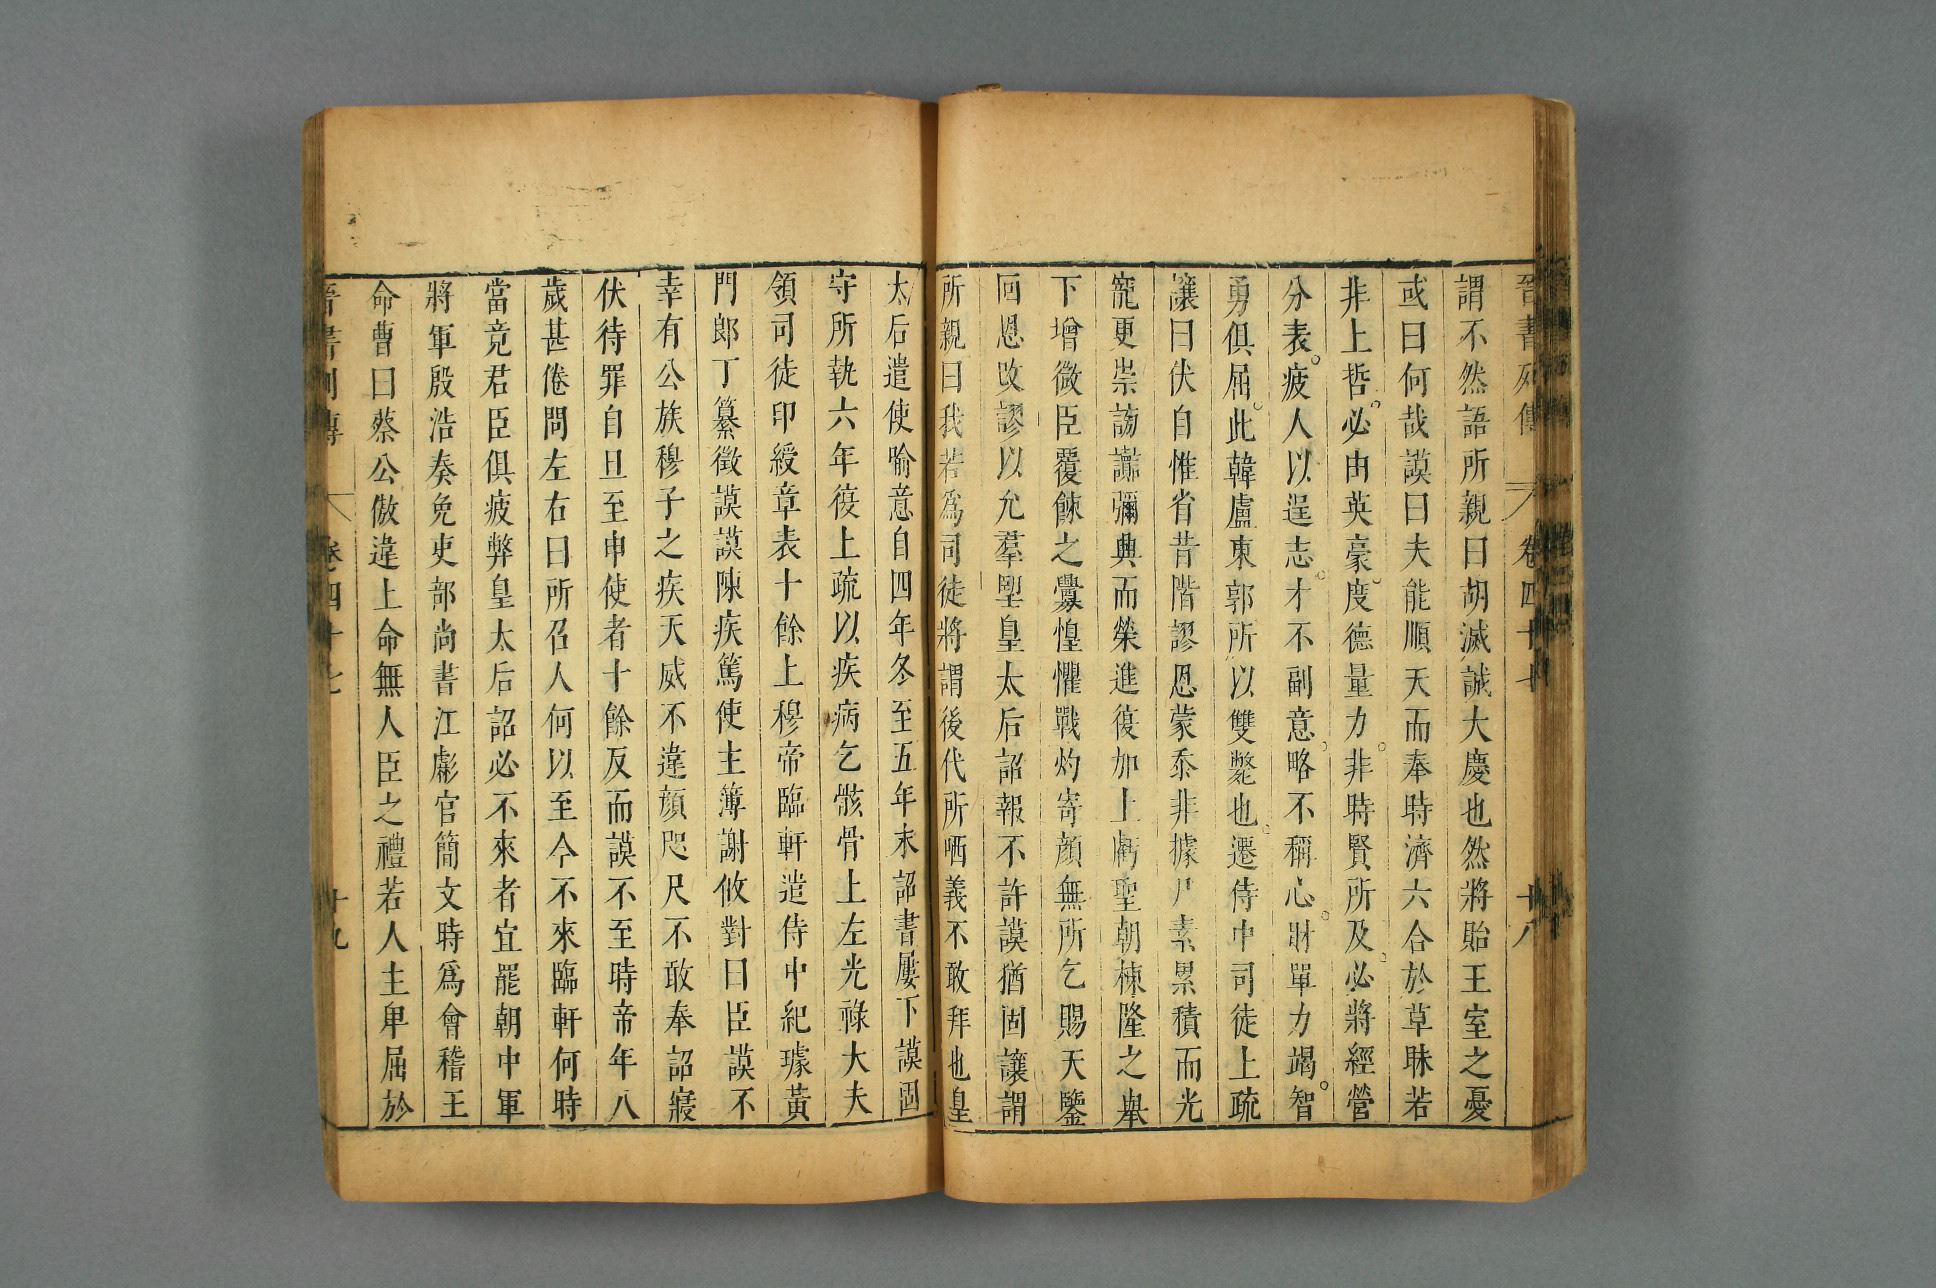 晉書列傳 卷四十七 十八
謂不然語所親曰胡滅誠大慶也然將貽王室之憂
或曰何哉謨曰夫能順天而奉時濟六合於草昧若
非上哲必由英豪度德量力非時賢所及必將經營
分表疲人以逞志才不副意略不稱心財單力竭智
勇俱屈此韓盧東郭所以雙斃也遷侍中司徒上疏
讓曰伏自惟省昔階謬恩蒙忝非據尸素累積而光
寵更崇謗讟彌興而榮進復加上虧聖朝棟隆之舉
下增微臣覆餗之釁惶懼戰灼寄顏無所乞賜天鑒
回恩改謬以允羣望皇太后詔報不許謨猶固讓謂
所親曰我若爲司徒將謂後代所哂義不敢拜也皇
太后遣使喻意自四年冬至五年末詔書屢下謨固
守所執六年復上疏以疾病乞骸骨上左光祿大夫
領司徒印綬章表十餘上穆帝臨軒遣侍中紀璩黃
門郎丁纂徵謨謨陳疾篤使主簿謝攸對曰臣謨不
幸有公族穆子之疾天威不違顏咫尺不敢奉詔寢
伏待罪自旦至申使者十餘反而謨不至時帝年八
歲甚倦問左右曰所召人何以至今不來臨軒何時
當竟君臣俱疲弊皇太后詔必不來者宜罷朝中軍
將軍殷浩奏免吏部尚書江彪官簡文時爲會稽王
命曹曰蔡公傲違上命無人臣之禮若人主卑屈於
晉書列傳 卷四十七 十九